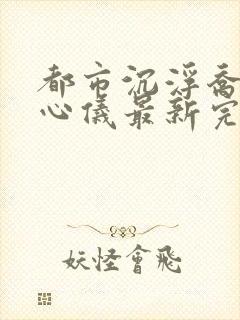 都市沉浮乔
心儀最新完
妖怪會飛